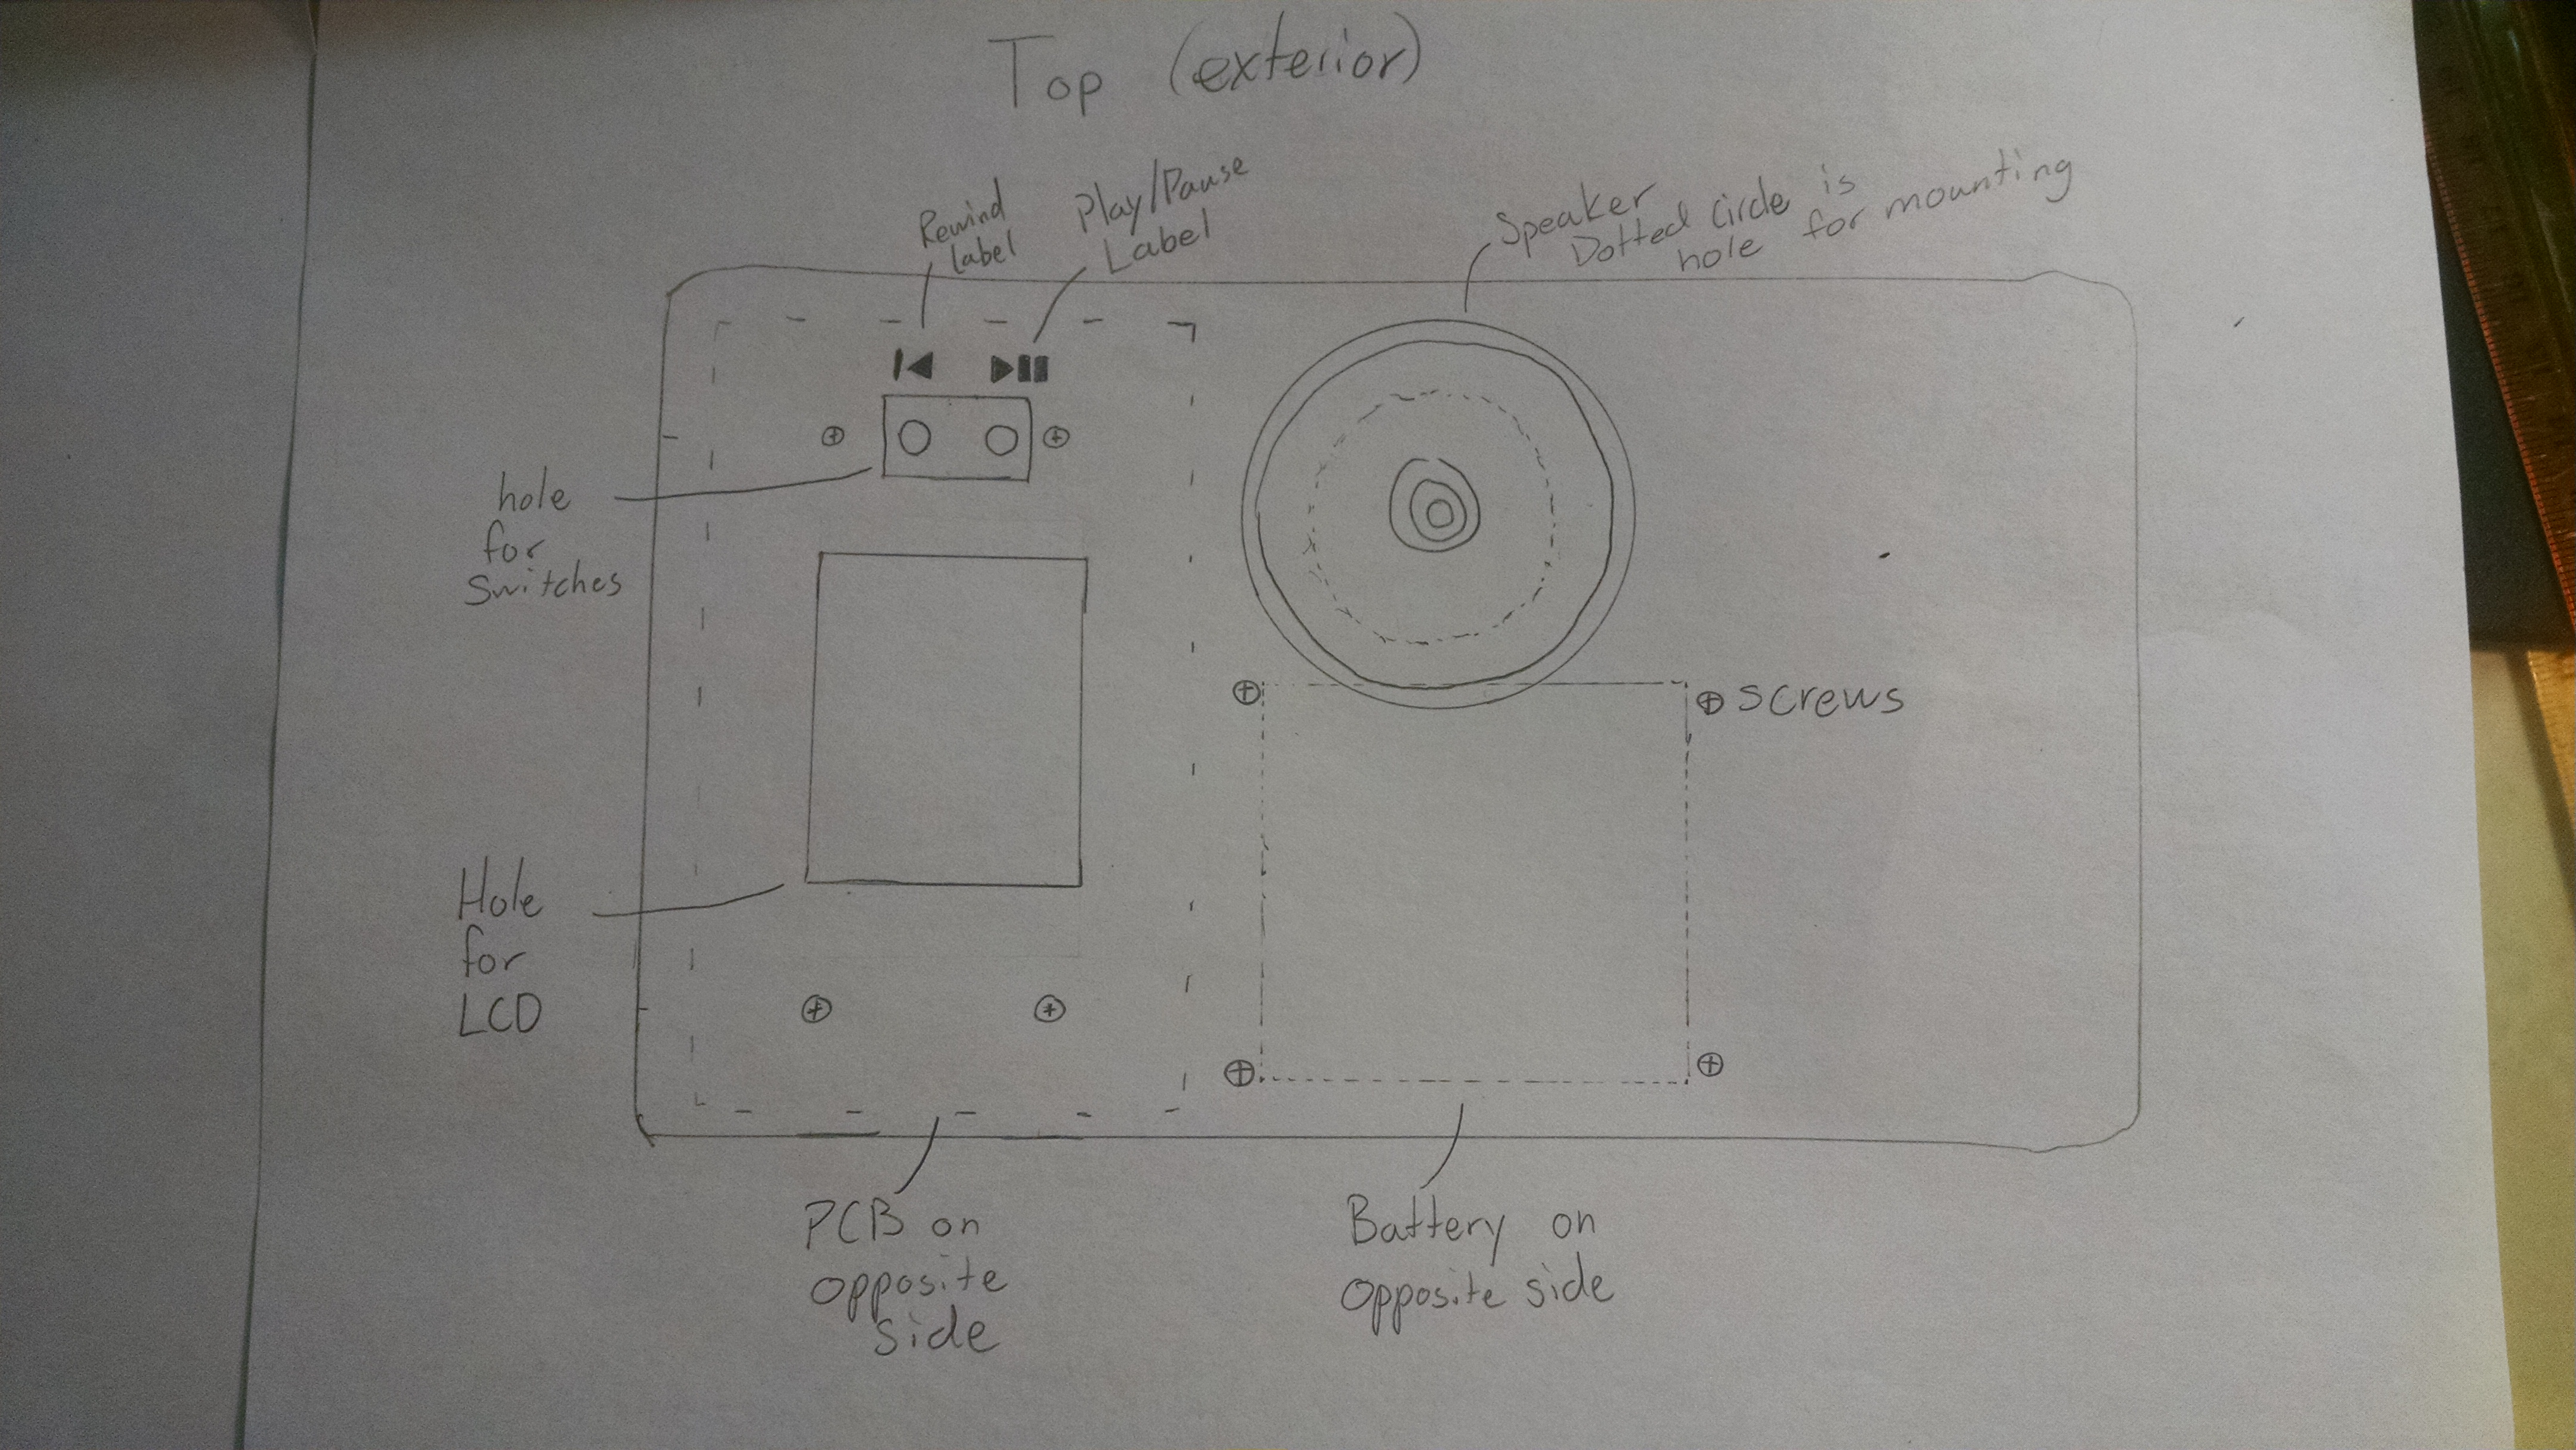 Top (exterior)
Rewind
label
Play/Pause
Label
Speaker
Dotted circle is
hole for mounting
hole
for
Switches
screws
Hole
for
LCD
PCB on
opposite
side
Battery on
opposite side